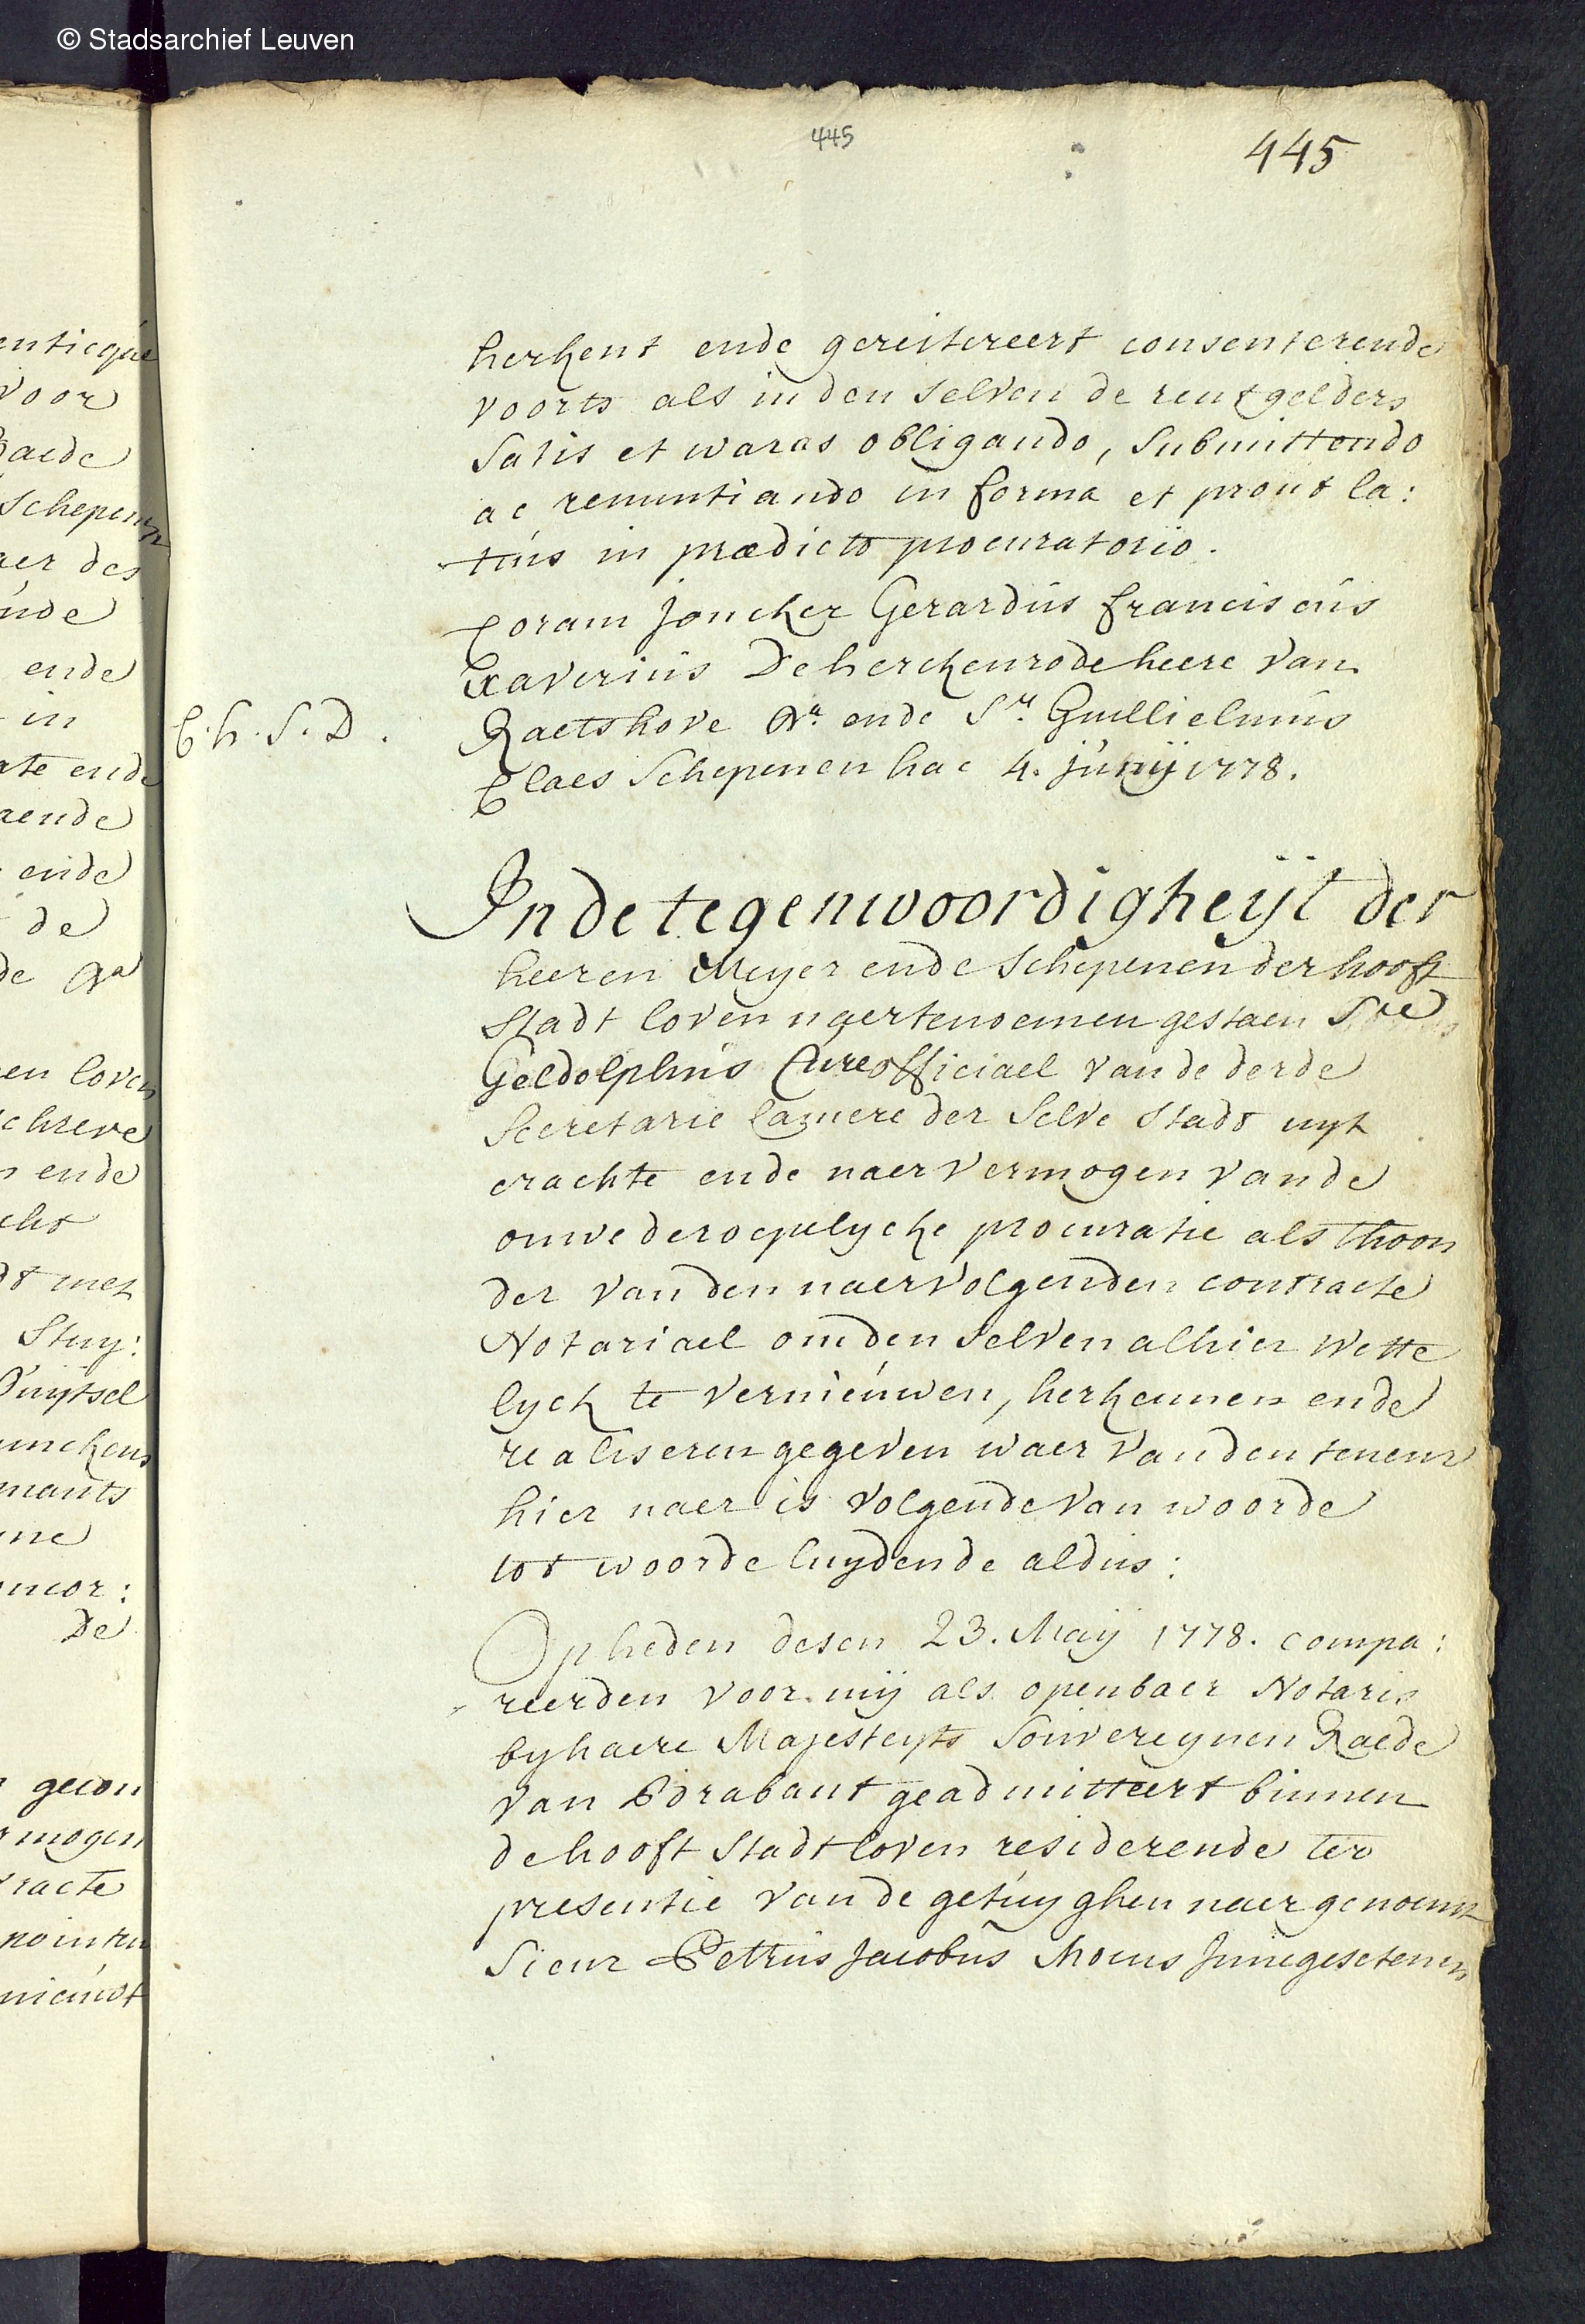 © Stadsarchief Leuven
445
445
herkent ende gereitereert consenterende
voorts als in den selven de rentgelders
satis et waras obligando, submittendo
ac renuntiando in forma et prout la:
tius in prædicto procuratorio.
Coram joncker Gerardus franciscus
Xaverius De herckenrode heere van
Raetshove &ra ende Sr. Guillielmus
Claes Schepenen hac 4. junij 1778.
C. h. S. D.
In de tegenwoordigheijt der
heeren Meyer ende schepenen der hooft
stadt loven naertenoemen gestaen Sre
Geldolphus Cure officiael van de derde
Secretarie camere der selve stadt uyt
crachte ende naer vermogen vande
onwederoepelycke procuratie als thoon
der van den naervolgenden contracte
Notariael om den selven alhier wette
lyck te vernieuwen, herkennen ende
realiseren gegeven waer van den teneur
hier naer is volgende van woorde
tot woorde luydende aldus:
Op heden desen 23. Maij 1778. compa:
reerden voor mij als openbaer Notaris
by haere Majesteyts Souvereynen Raede
van Brabant geadmitteert binnen
de hooft stadt loven residerende ter
presentie van de getuyghen naergenoemt
Sieur Petrus Jacobus Moens innegesetenen
enticque
voor
Raede
Schepenen
aer des
ende
in
ate ende
aende
ende
de
de &a
en loven
schreve
n ende
dt met
Stuy:
Duytsel
mants
De
gecon
rmogen
racte
nieuwt